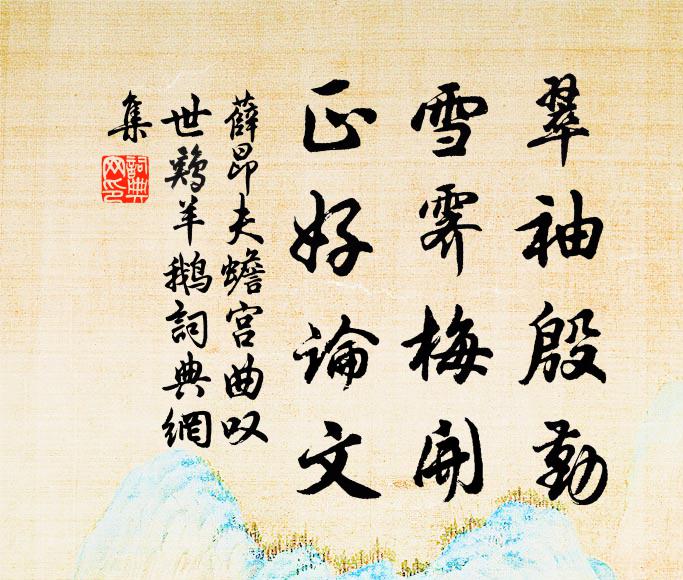 翠袖殷勤
雪霁梅開
正好论文
薛昂夫蟾宫曲叹
世鷄羊鹅詞典網
集
詞典
网印